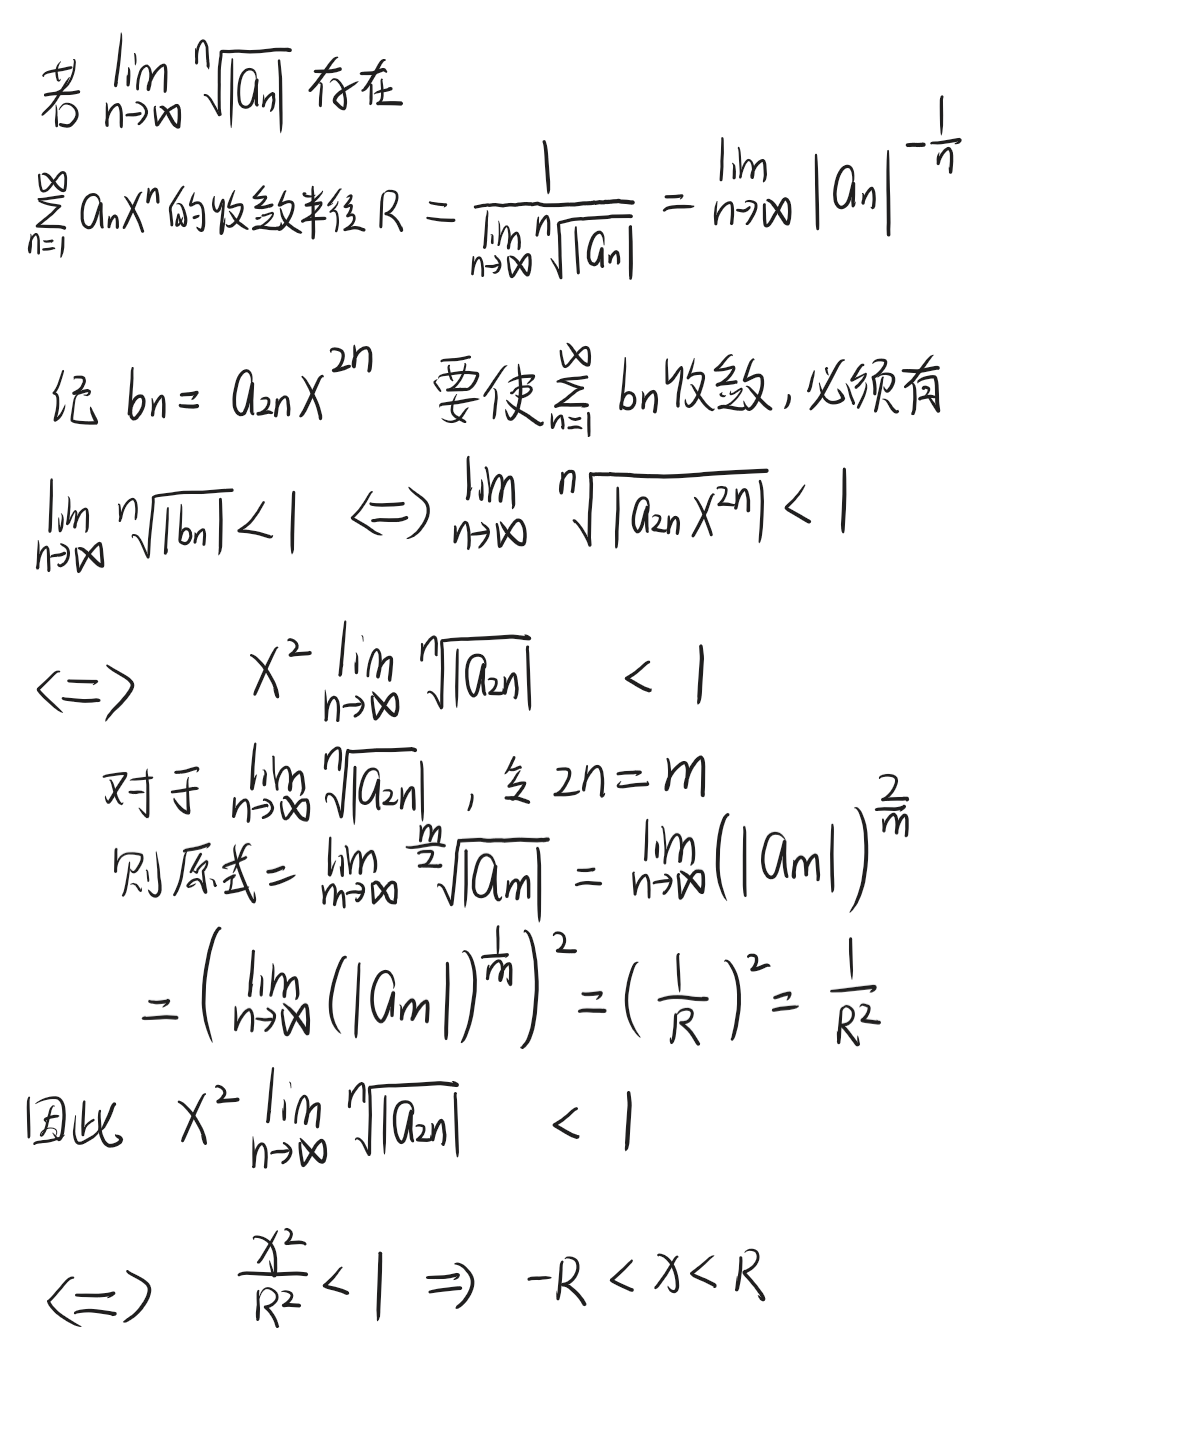 若 $\lim_{n\to\infty} \sqrt[n]{|a_n|}$ 存在
$\sum_{n=1}^{\infty} a_n x^n$ 的收敛半径 $R = \frac{1}{\lim_{n\to\infty} \sqrt[n]{|a_n|}} = \lim_{n\to\infty} |a_n|^{-\frac{1}{n}}$
记 $b_n = a_{2n} x^{2n}$ 要使 $\sum_{n=1}^{\infty} b_n$ 收敛, 必须有
$\lim_{n\to\infty} \sqrt[n]{|b_n|} < 1 \iff \lim_{n\to\infty} \sqrt[n]{|a_{2n} x^{2n}|} < 1$
$\iff x^2 \lim_{n\to\infty} \sqrt[n]{|a_{2n}|} < 1$
对于 $\lim_{n\to\infty} \sqrt[n]{|a_{2n}|}$ , 令 $2n = m$
则原式 $= \lim_{m\to\infty} \sqrt[\frac{m}{2}]{|a_m|} = \lim_{n\to\infty} (|a_m|)^{\frac{2}{m}}$
$= \left( \lim_{n\to\infty} (|a_m|)^{\frac{1}{m}} \right)^2 = \left( \frac{1}{R} \right)^2 = \frac{1}{R^2}$
因此 $x^2 \lim_{n\to\infty} \sqrt[n]{|a_{2n}|} < 1$
$\iff \frac{x^2}{R^2} < 1 \Rightarrow -R < x < R$